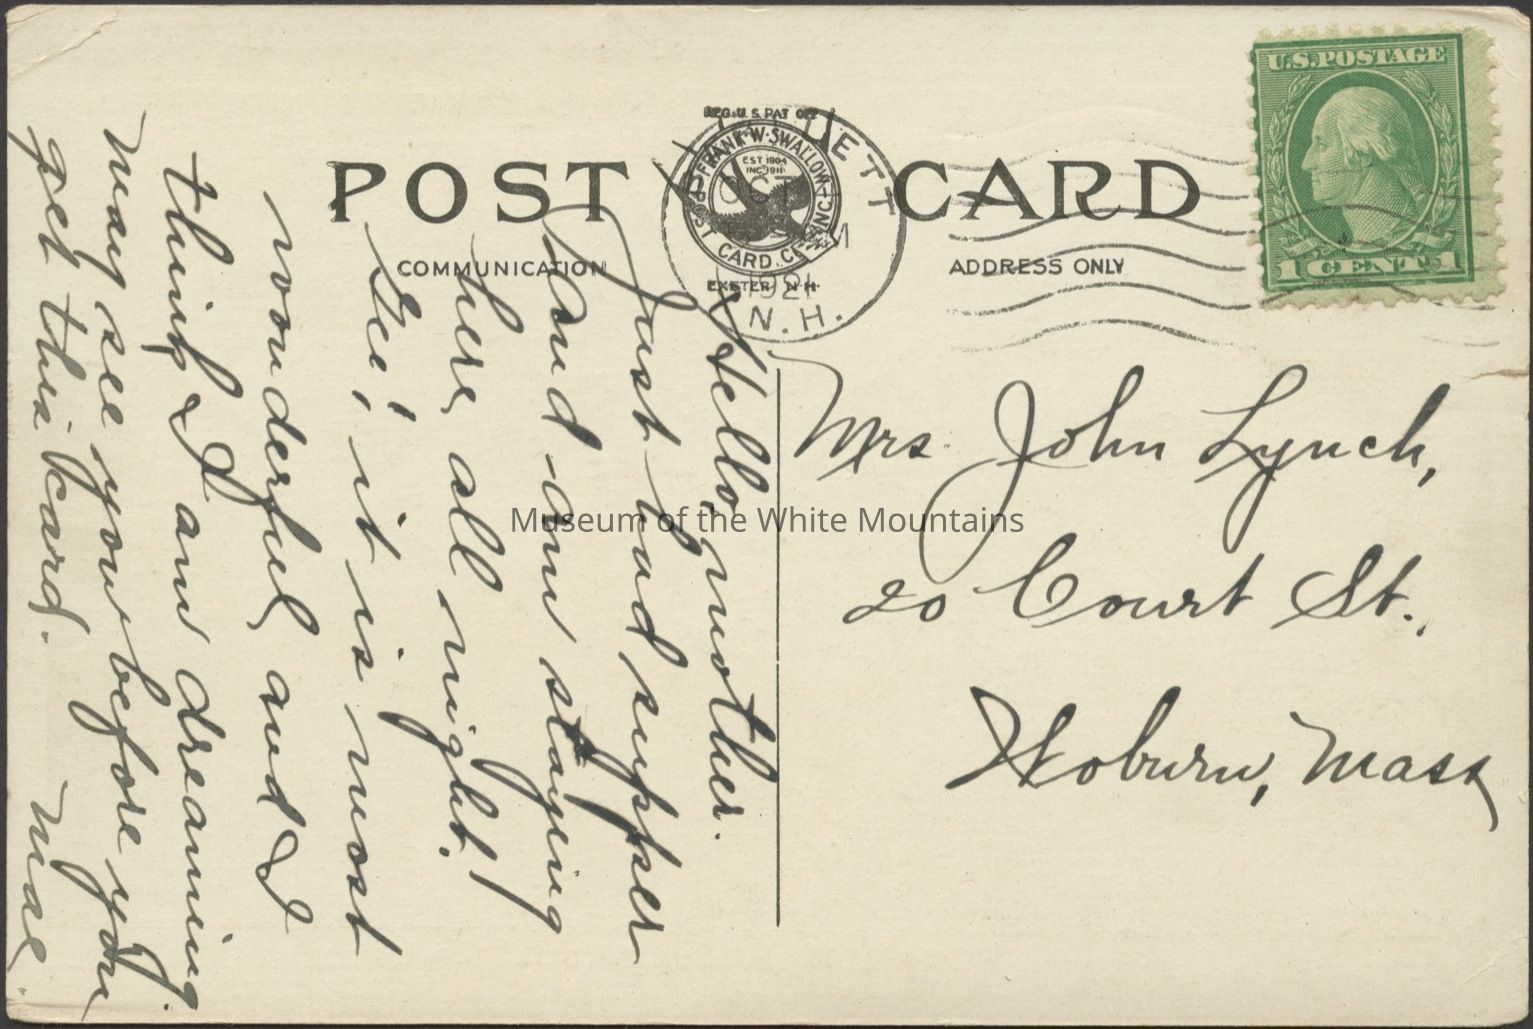 POST CARD
COMMUNICATION
ADDRESS ONLY
REG. U.S. PAT OFF
FRANK·W·SWALLOW
POST CARD CO. INC.
EST 1904
INC 1911
EXETER, N.H.
OCT
M
1921
N.H.
U.S.POSTAGE
1 CENT 1
Hello, mother.
Just had supper
and am staying
here all night!
Gee, it is most
wonderful and I
think I am dreaming.
may see you before you
get this card. Mae.
Mrs. John Lynch,
20 Court St.,
Woburn, Mass
Museum of the White Mountains